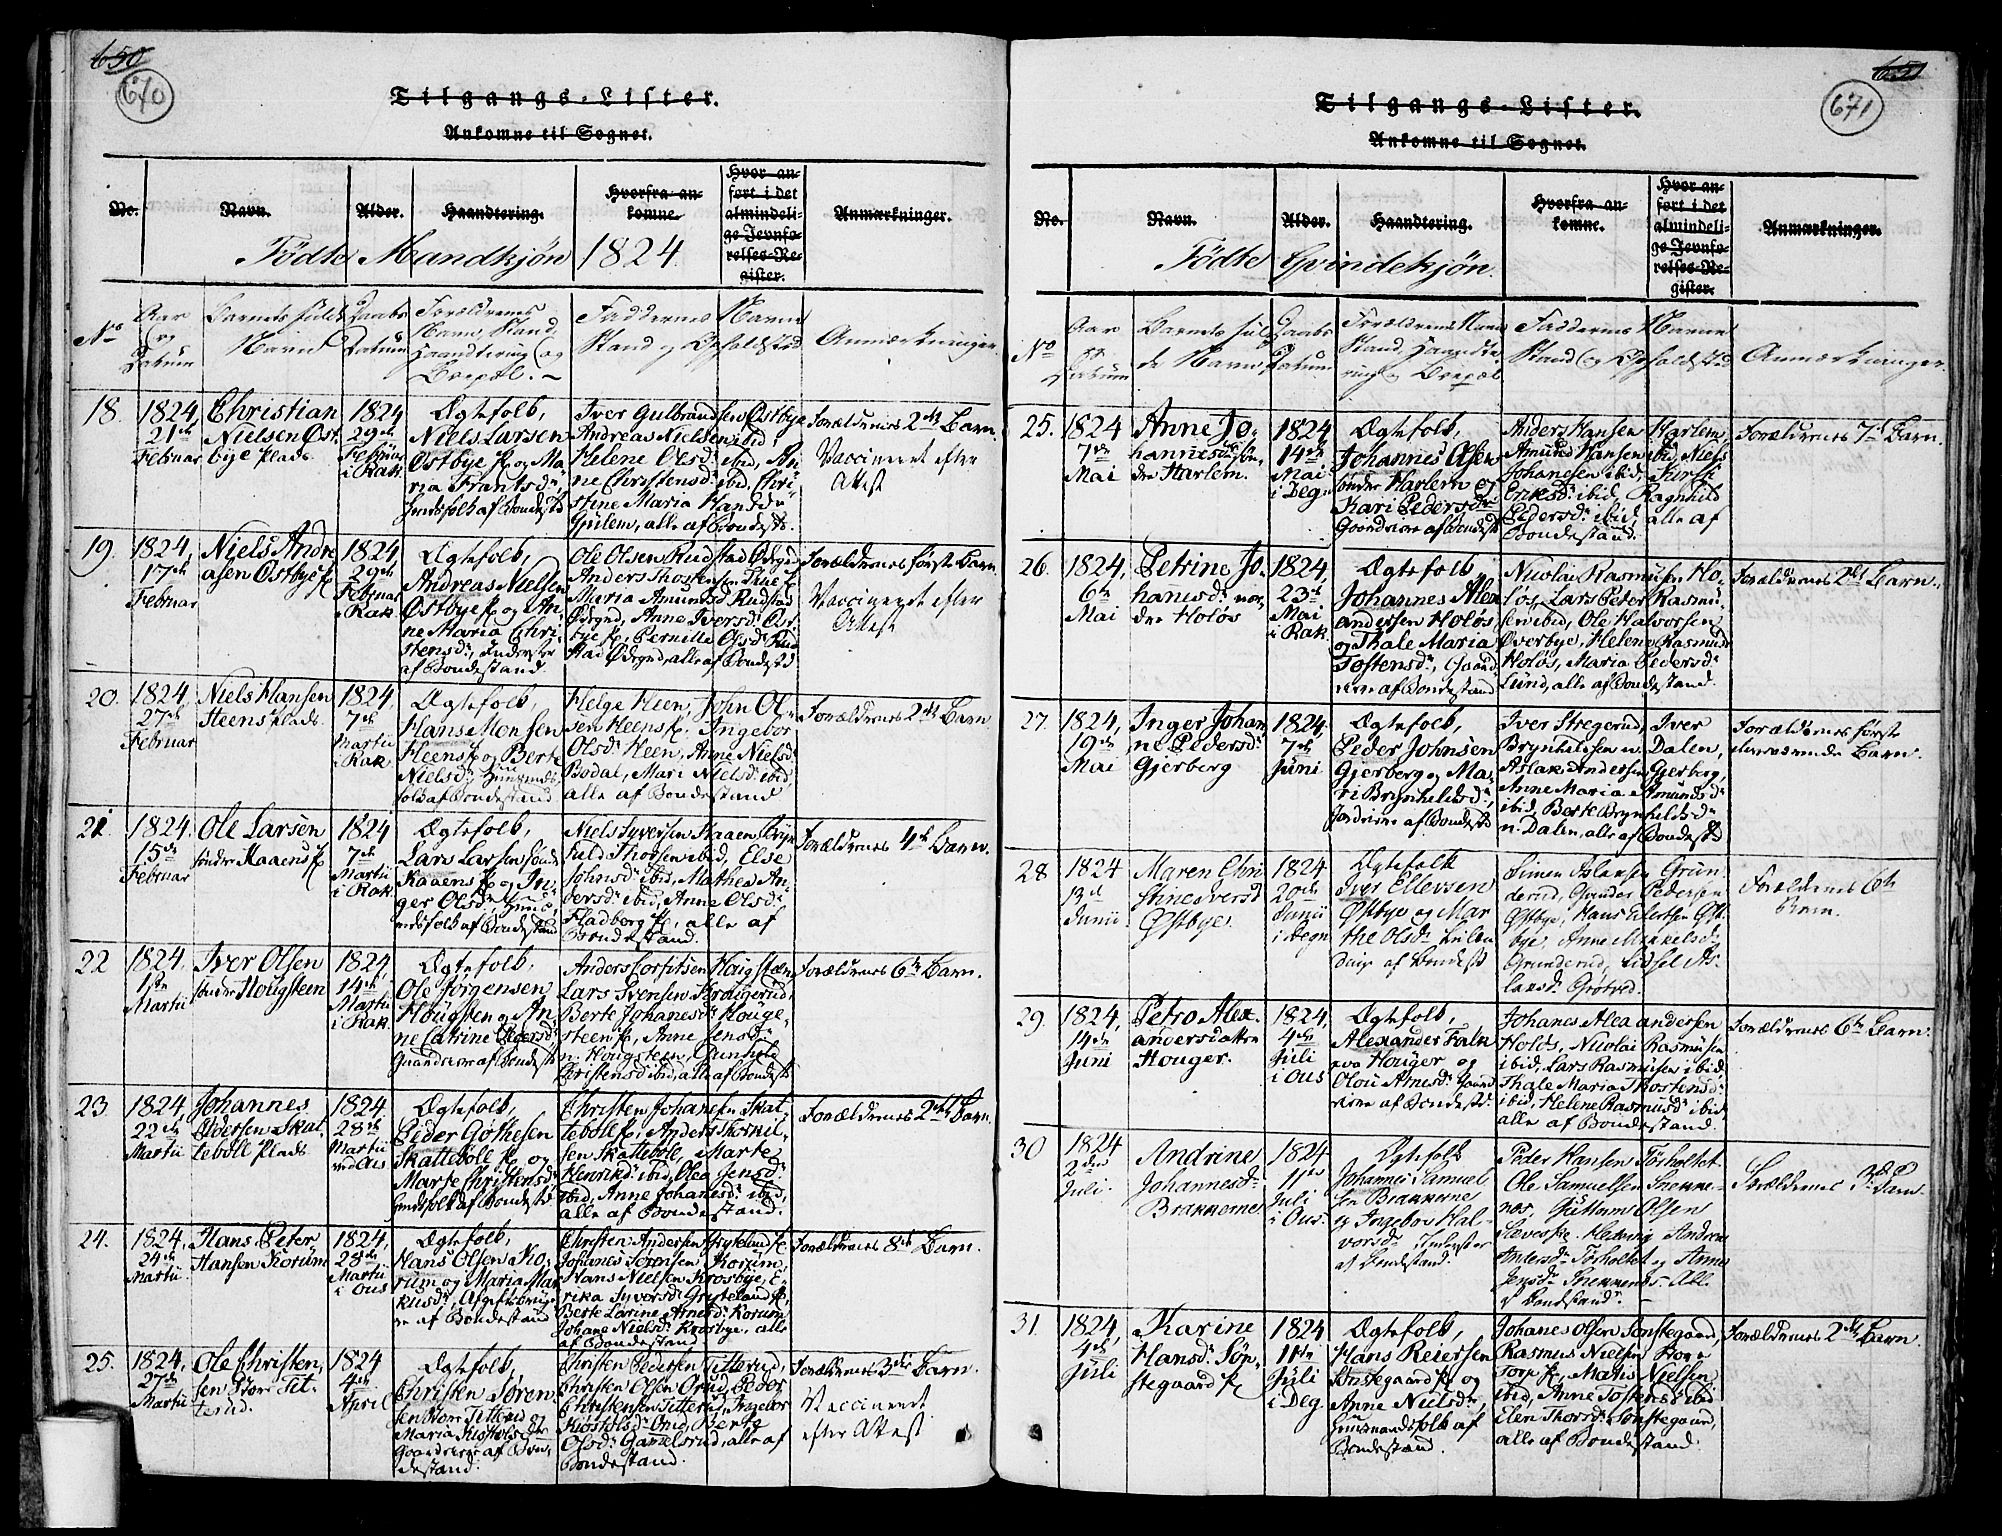 650
670
Tilgangs-Lister.
Ankomne til Sognet.
No.
Navn.
Alder.
Haandtering.
Hvorfra an-
komne.
Hvor an-
ført i det
almindeli-
ge Jevnfø-
relses-Re-
gister.
Anmærkninger.
Födte Mandkjön 1824
No
Aar
og
Datum
Barnets fulde
Navn
Daabs
Datum
Forældrenes
Navn, Stand,
Haandtering og
Bopæl.
Faddernes Navne
Stand og Opholdsted
Anmærkninger.
18.
1824
21de
Februar
Christian
Nielsen Øst-
bye plads
1824
29de
Februar
i Rak.
Ægtefolk,
Niels Larsen
Østbye pl. og Ma-
ria Frantsd.
Huusfolk af Bondestd
Iver Gulbrandsen Østbye
Andreas Nielsen ibid
Helene Olsd: ibid, An-
ne Christensd: ibid, Chri-
stine Maria Hansd:
Gjulem, alle af Bondest:
Forældrenes 2det Barn.
Vaccineret efter
Attest
19.
1824,
17de
Februar
Niels Andre
asen Østbye pl
1824
29de
Februar
i Rak.
Ægtefolk,
Andreas Nielsen
Østbye pl. og An-
ne Maria Chri-
stensd:, Inderster
af Bondestand.
Ole Olsen Rudstad Ødegrd
Anders Thostensen Thue pl
Maria Amundsd Rudstad
Ødegrd, Anne Iversd: Øst-
bye pl, Pernille Olsd: Rud
stad Ødegrd, alle af Bondestd
Forældrenes første Barn.
Vaccineret efter
Attest
20.
1824,
27de
Februar
Niels Hansen
Heens plads.
1824,
7de
Martii
i Rak
Ægtefolk,
Hans Monsen
Heens pl. og Berte
Nielsd:, Huusmands-
folk af Bondestand
Helge Heen, John Ol-
sen Heens pl. Ingebor
Olsd: Heen, Anne Nielsd:
Bodal, Mari Nielsd: ibid,
alle af Bondestand
Forældrenes 2det Barn
21.
1824,
15de
Februar
Ole Larsen
søndre Kaaens pl
1824
7de
Martii
i Rak
Ægtefolk,
Lars Larsen søndre
Kaaens pl. og In-
ger Olsd: Huus-
mdsfolk af Bondestand
Niels Syversen Kaaen, Bryn
hild Thorsen ibid, Else
Johnsd: ibid, Mathea An-
dersd: ibid, Anne Olsd:
Fladborg pl, alle af
Bondestand.
Forældrenes 4de Barn.
22
1824,
1ste
Martii
Iver Olsen
søndre Hougsteen
1824,
14de
Martii
i Rak.
Ægtefolk,
Ole Jörgensen
Hougsten og An-
ne Catrine
Gaardsfolk af Bondestd
Anders Corfitsen Hougsteen
Lars Svensen Krougerud,
Berte Johanesd: Houge-
steen pl, Anne Jensd:
n. Hougsteen, Gunhild
Christensd: ibid, alle af Bondestd
Forældrenes 6te Barn.
23
1824,
22de
Martii
Johannes
Pedersen Skat-
teböll plads
1824.
28de
Martii
ved Ous
Ægtefolk,
Peder Gothesen
Skatteböll pl. og
Marte Christensd:
Huusfolk af Bondestd
Christen Johanesen Skat-
teböll pl., Anders Thorkil-
sen Skatteböll, Marte
Henriksd: ibid, Olea Jensd:
ibid, Anne Johanesd: ibid,
alle af Bondestand.
Forældrenes 2det Barn.
24.
1824,
24de
Martii
Hans Peter
Hansen Korum
1824,
28de
Martii
i Ous
Ægtefolk,
Hans Olsen Ko-
rum og Maria Mar-
kusd:, Afgiftsbruge-
re af Bondestand
Christen Andersen Grytelund pl.
Johanes Sørensen Korum,
Hans Nielsen Krosbye, E-
rika Syversd: Grytelund pl,
Berte Larine Arnesd: Korum,
Johane Nielsd: Krosbye, alle
af Bondestand.
Forældrenes 8de Barn.
25.
1824,
27de
Martii
Ole Christen-
sen Store Tit-
terud.
1824
4de
April
Ægtefolk,
Christen Sören-
sen Store Titterud og
Maria
Gaardbrugere af Bon-
destand.
Christen Pedersen Titterud,
Christen Olsen Orud, Peder
Christensen Titterud, Ingebor
Orud, Berte
Olsd: Gamelsrud, alle af
Bondestand.
Forældrenes 3die Barn.
Vaccineret
efter Attest
651
671
Tilgangs-Lister.
Ankomne til Sognet.
No.
Navn.
Alder.
Haandtering.
Hvorfra an-
komne.
Hvor an-
ført i det
almindeli-
ge Jevnfø-
relses-Re-
gister.
Anmærkninger.
Födte Qvindekjön.
No
Aar
og
Datum
Barnets ful-
de Navn
Daabs
Datum
Forældrenes Navn
Stand, Haandte-
ring og Bopæl
Faddernes Navne
Stand og Opholdsted
Anmærkninger
25.
1824
7de
Mai
Anne Jo-
hannesd: søn-
dre Harlem.
1824
14de
Mai
i Degn
Ægtefolk,
Johannes Olsen
søndre Harlem og
Kari Pedersd:
Gaardbrugere af Bondestd
Anders Hansen Harlem,
Amund Hansen ibid, Niels
Johanesen ibid, Kirsti
Eriksd: ibid, Ragnhild
Pedersd: ibid, alle af
Bondestand.
Forældrenes 7de Barn.
26.
1824,
6te
Mai
Petrine Jo-
hanesd: nor-
dre Holös
1824,
23de
Mai
i Rak.
Ægtefolk,
Johannes Alex
andersen Holös
og Thale Maria
Tostensd:, Gaard
brugere af Bondestand
Nicolai Rasmusen Ho-
lös, Lars Peder Rasmu-
sen ibid, Ole Halvorsen
Overbye, Helene Rasmusd:
Holös, Maria Pedersd:
Lund, alle af Bondestand.
Forældrenes 2det Barn.
27.
1824,
19de
Mai
Inger Johan
ne Pedersd:
Gjerberg
1824,
7de
Juni
Ægtefolk,
Peder Johnsen
Gjerberg og Ma-
ri Brynhildsd:,
Jordeiere af Bondestd
Iver Stregerud, Iver
Brynhildsen n. Dalen,
Aslak Andersen Gjerberg,
Anne Maria Amundsd:
ibid, Berte Brynhildsd:
n. Dalen, alle af Bondestd
Forældrenes første
nærværende Barn.
28
1824
13de
Junii
Maren Chri
stine Iversd
Østbye.
1824
20de
Junii
i Degn
Ægtefolk
Iver Ellevsen
Østbye og Mar
the Olsd:
af Bondestd
Simen Aslaksen Grun-
derud, Gunder Pedersen
Østbye, Hans Elertsen Øst-
bye, Anne Mikkelsd:
Grunderud, Lidsel As-
laksd: Grötved.
Forældrenes 6te
Barn.
29.
1824,
14de
Juni
Petro Alex-
andersdatter
Houger.
1824,
4de
Juli
i Ous
Ægtefolk,
Alexander Falk
Houger og
Olou Arnesd: Gaard
brugere af Bondestd:
Johanes Alexandersen
Holös, Nicolai Rasmusen
ibid, Lars Rasmusen ibid,
Thale Maria Thostensd:
ibid, Helene Rasmusd: ibid
alle af Bondestand.
Forældrenes 6te Barn.
30
1824
2den
Juli.
Andrine
Johannesd:
Brækkernes
1824
11te
Juli
i Ous.
Ægtefolk
Johannes Samuel
sen Brækkernes
og Ingebor Hal-
vorsd: Inderster
af Bondestand.
Peder Hansen Torholtet.
Ole Samuelsen Snekke-
nes, Guttorm Olsen
pl. Helvig Andrea
Andersd: Torholtet og Anne
Jensd: Snekkenes. Alle
af Bondestand.
Forældrenes 3die Barn.
31.
1824,
4de
Juli
Karine
Hansd: Søn-
stegaard pl
1824
11te
Juli
i Deg
Ægtefolk,
Hans Reiersen
Sønstegaard pl og
Anne Nielsd:,
Huusmandsfolk af
Bondestand.
Johanes Olsen Sønstegaard,
Rasmus Nielsen Store
Torp pl, Matis Nielsen
ibid, Anne Tostensd ibid
Elen Thorsd: Sønstegaard,
alle af Bondestand.
Forældrenes 2det Barn